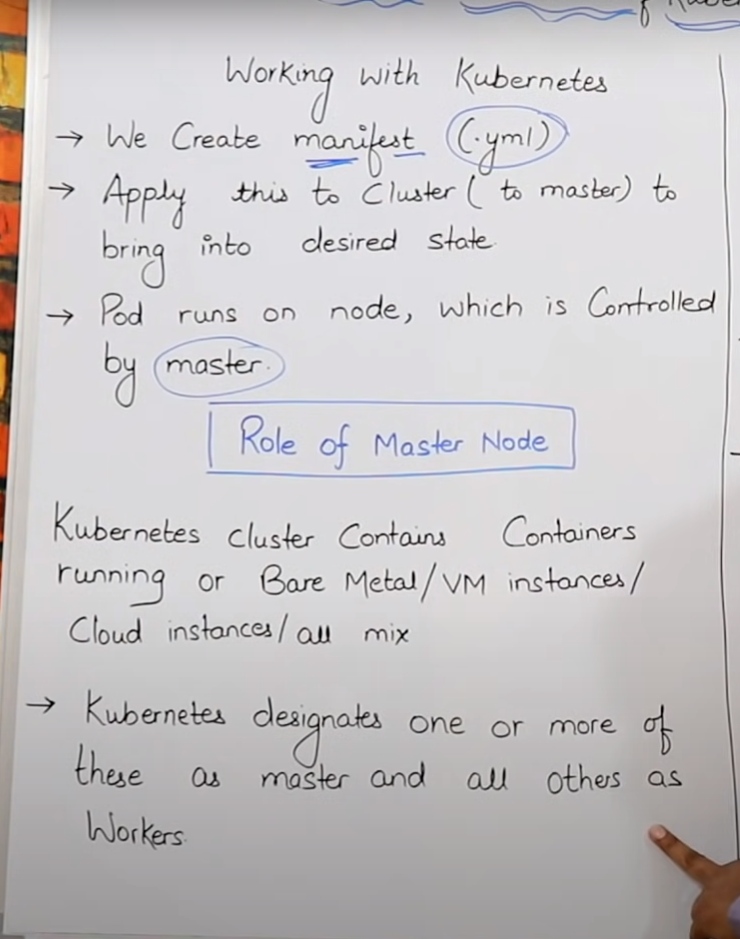 Working with Kubernetes
→ We Create manifest (.yml)
→ Apply this to Cluster ( to master) to
bring into desired state.
→ Pod runs on node, which is Controlled
by master.
Role of Master Node
Kubernetes cluster Contains Containers
running or Bare Metal/VM instances/
Cloud instances/ all mix
→ Kubernetes designates one or more of
these as master and all others as
Workers.